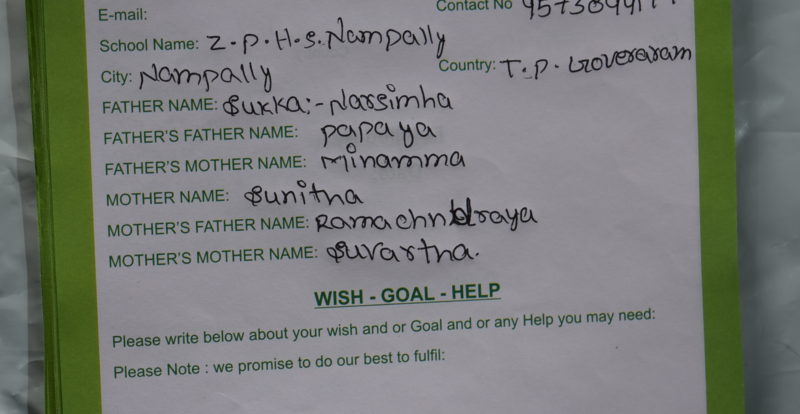 E-mail: Contact No
School Name: Z.P.H.S. Nampally
City: Nampally Country: T.P. Goveraram
FATHER NAME: Sukka:- Narsimha
FATHER'S FATHER NAME: papaya
FATHER'S MOTHER NAME: minamma
MOTHER NAME: Sunitha
MOTHER'S FATHER NAME: Ramachndraya
MOTHER'S MOTHER NAME: Suvartha.
WISH - GOAL - HELP
Please write below about your wish and or Goal and or any Help you may need:
Please Note : we promise to do our best to fulfil: